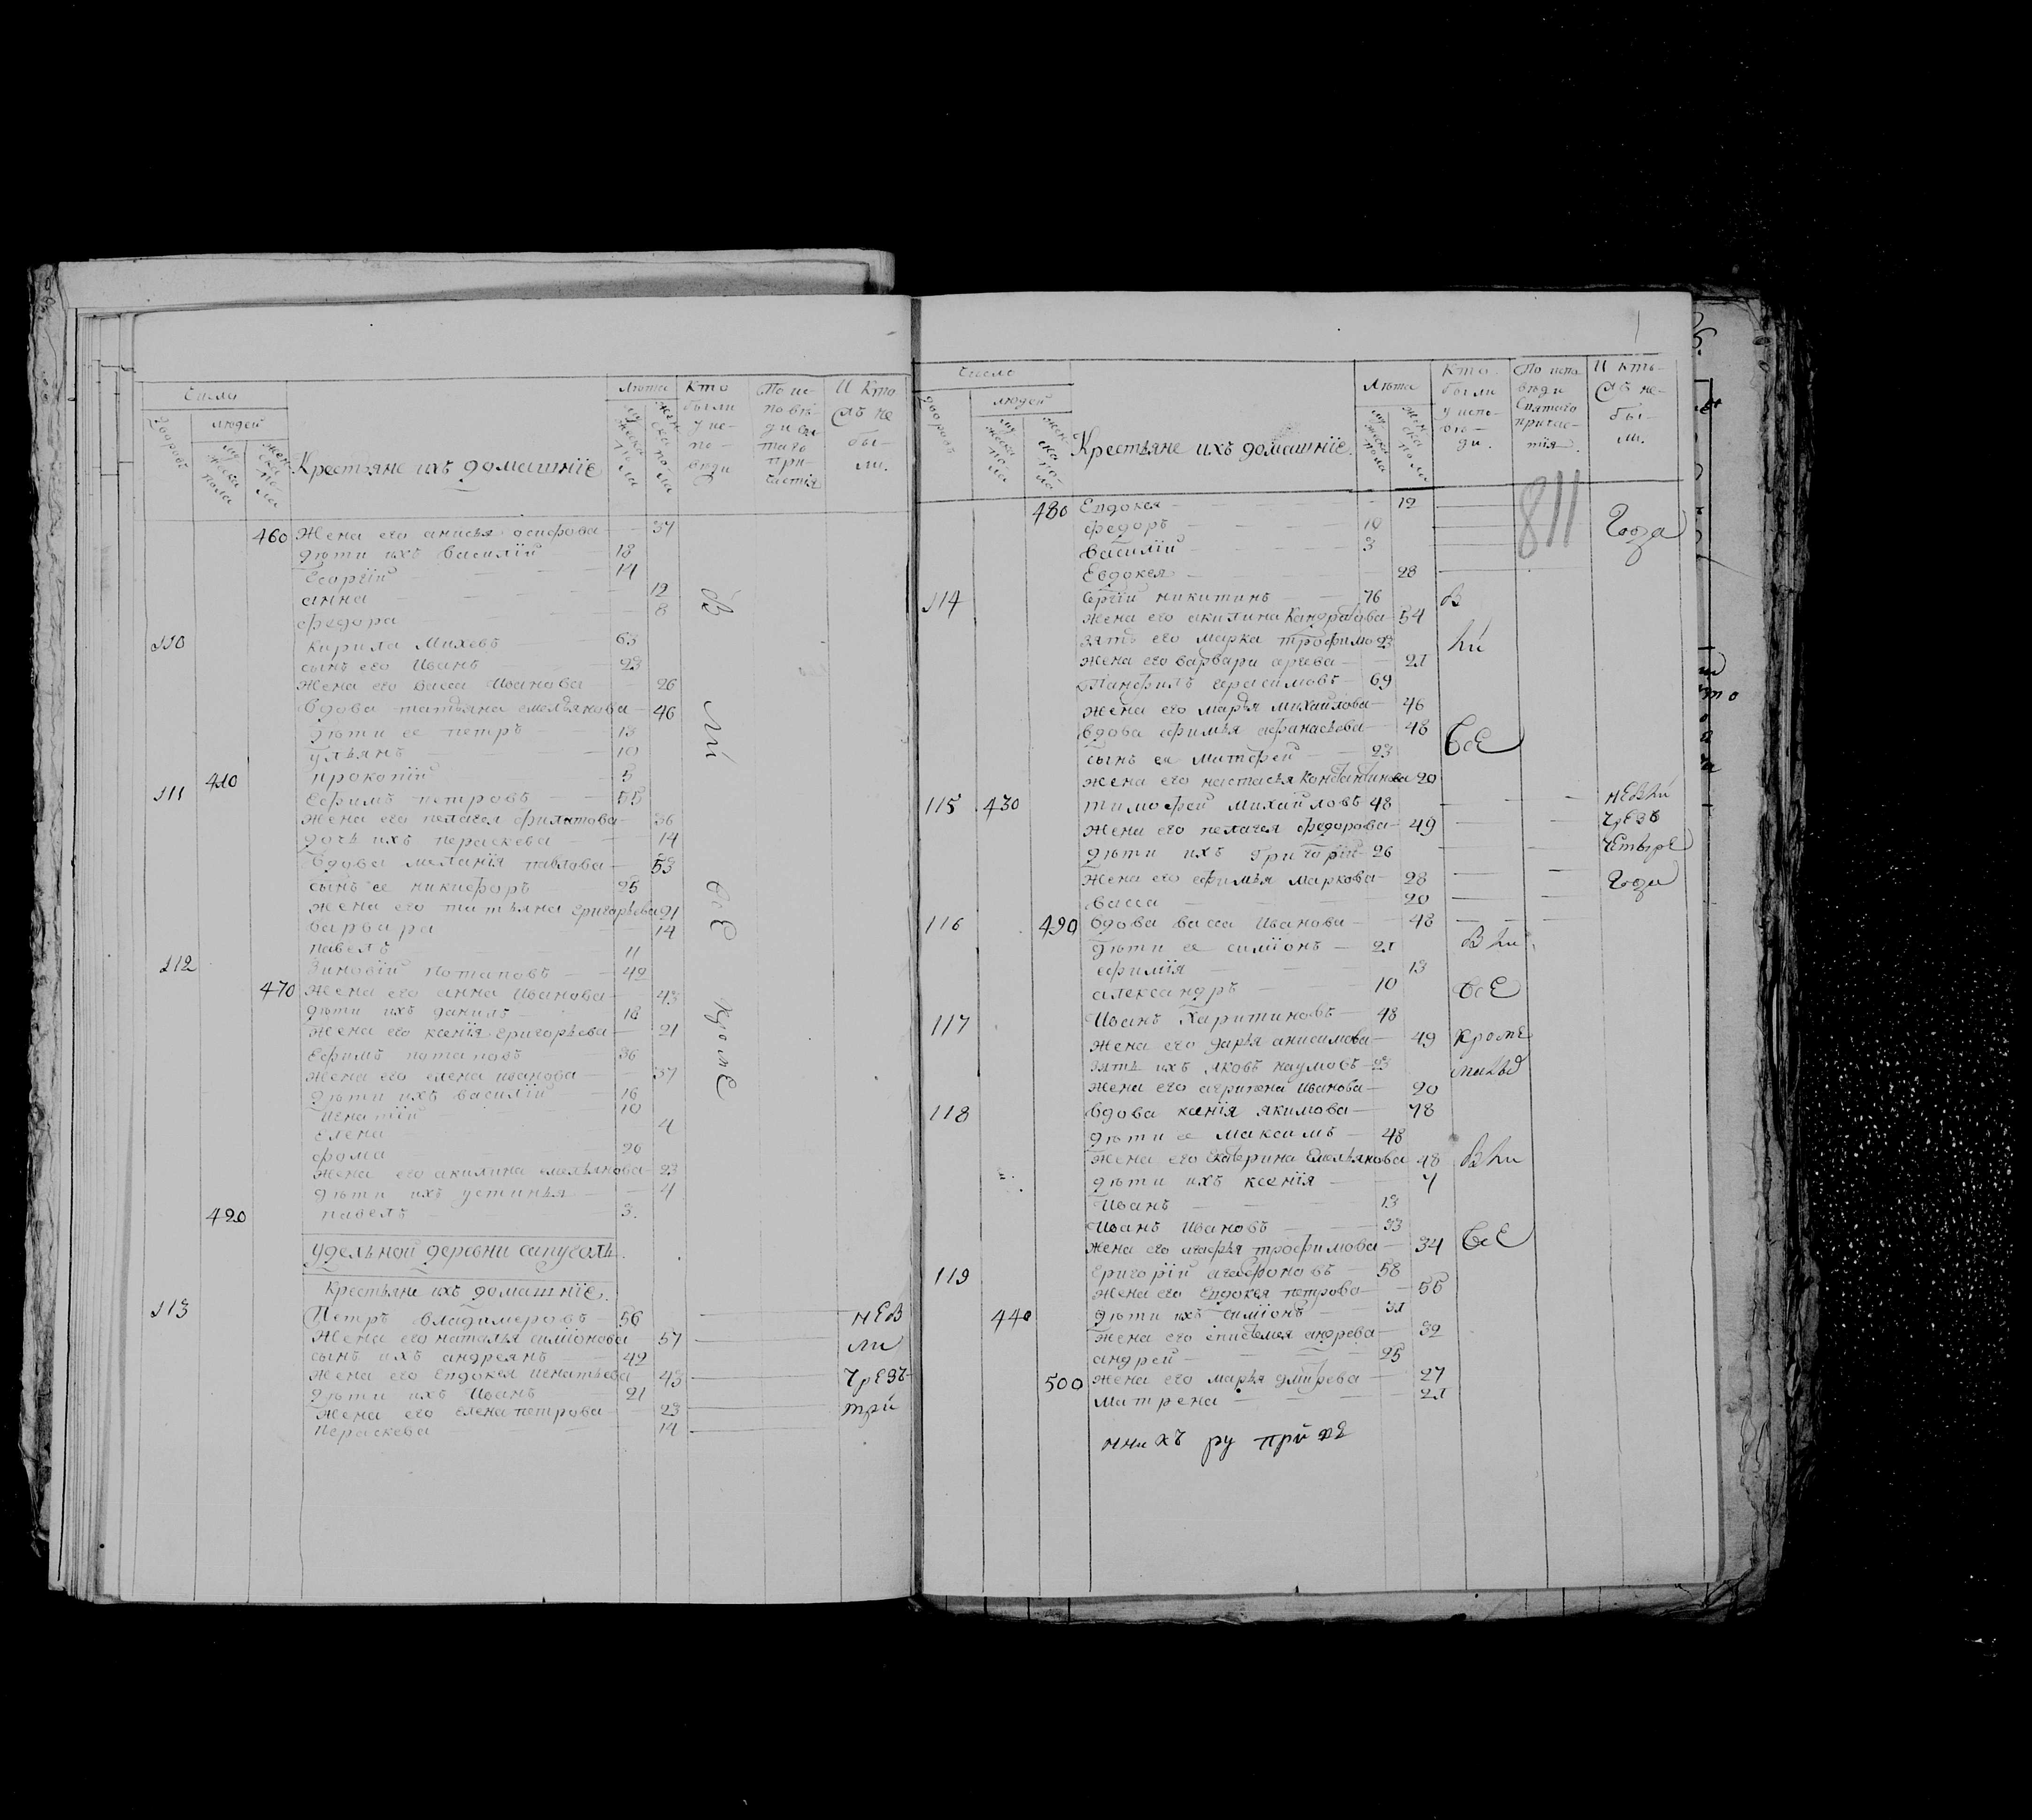 Число
людей
Лѣта
Кто были у исповѣди
По исповѣди святаго причастія
И кто изъ не были.
дворовъ
мужеска пола
женска пола
мужеска пола
женска пола
Крестьяне ихъ домашнїе
460 Жена его анисья осифова 37
дѣти ихъ василїй 18
Георгїй 14
анна 12
федора 8
110 кирила Михевъ 63
сынъ его Иванъ 23
Жена его васса Иванова 26
вдова татьяна емельянова 46
дѣти ее петръ 13
ульянъ 10
410 прокопїй 5
111 Ефимъ петровъ 55
Жена его пелагея филатова 36
дочь ихъ параскева 14
вдова меланїя павлова 53
сынъ ее никифоръ 25
Жена его татьяна григорьева 21
варвара 14
павелъ 11
112 Зиновїй потаповъ 42
470 Жена его анна Иванова 43
дѣти ихъ данилъ 18
Жена его ксенїя григорьева 21
Ефимъ потаповъ 36
Жена его елена иванова 37
дѣти ихъ василїй 16
Игнатїй 10
елена 4
фома 20
Жена его акилина емельянова 23
дѣти ихъ устинья 4
420 павелъ 3
В
ли
всЕ
кромЕ
удельной деревни сапуголь.
Крестьяне ихъ домашнїе.
113 Петръ владимеровъ 56 нЕВ
Жена его наталья симїонова 57 ли
сынъ ихъ андреянъ 42
Жена его Евдокея игнатьева 43 чрЕзъ
дѣти ихъ Иванъ 21
Жена его елена петрова 23 три
параскева 14
Число
людей
Лѣта
Кто были у исповѣди.
По исповѣди святаго причастїя.
И кто изъ не были.
дворовъ
мужеска пола
женска пола
мужеска пола
женска пола
Крестьяне ихъ домашнїе.
811
480 Евдокея 12
федоръ 10 года
василїй 3
Евдокея 28
114 сергїй никитинъ 76 В
Жена его акилина кандратова 54
зять его марка трофимо 23 ли
Жена его варвара 21
Панфилъ герасимовъ 69
Жена его марья михайлова 46
вдова ефимья афанасьева 48
сынъ ея матфей 23 всЕ
Жена его настасья константинова 20
115 430 тимофей михайловъ 48 нЕВли
Жена его пелагея федорова 49 чрЕзъ
дѣти ихъ григорїй 26 чЕтырЕ
Жена его ефимья маркова 28 года
васса 20
116 490 вдова васса Иванова 48
дѣти ее симїонъ 21 В ли
ефимїя 13
александръ 10 всЕ
117 Иванъ Харитиновъ 48
Жена его дарья анисимова 49 кромЕ
зять ихъ яковъ наумовъ 23
Жена его агрипена иванова 20
118 вдова ксенїя якимова 78
дѣти ее максимъ 48
Жена его екатерина емельянова 48 В ли
дѣти ихъ ксенїя 7
Иванъ 13
Иванъ Ивановъ 33
Жена его агафья трофимова 34 всЕ
119 григорїй агафоновъ 58
Жена его Евдокея петрова 55
440 дѣти ихъ симїонъ 31
Жена его андрева 32
андрей 25
500 Жена его марья 27
матрена 21